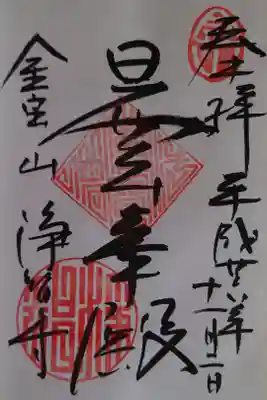 奉拝 平成廿年
十一月二日
曇華殿
金宝山 浄智寺